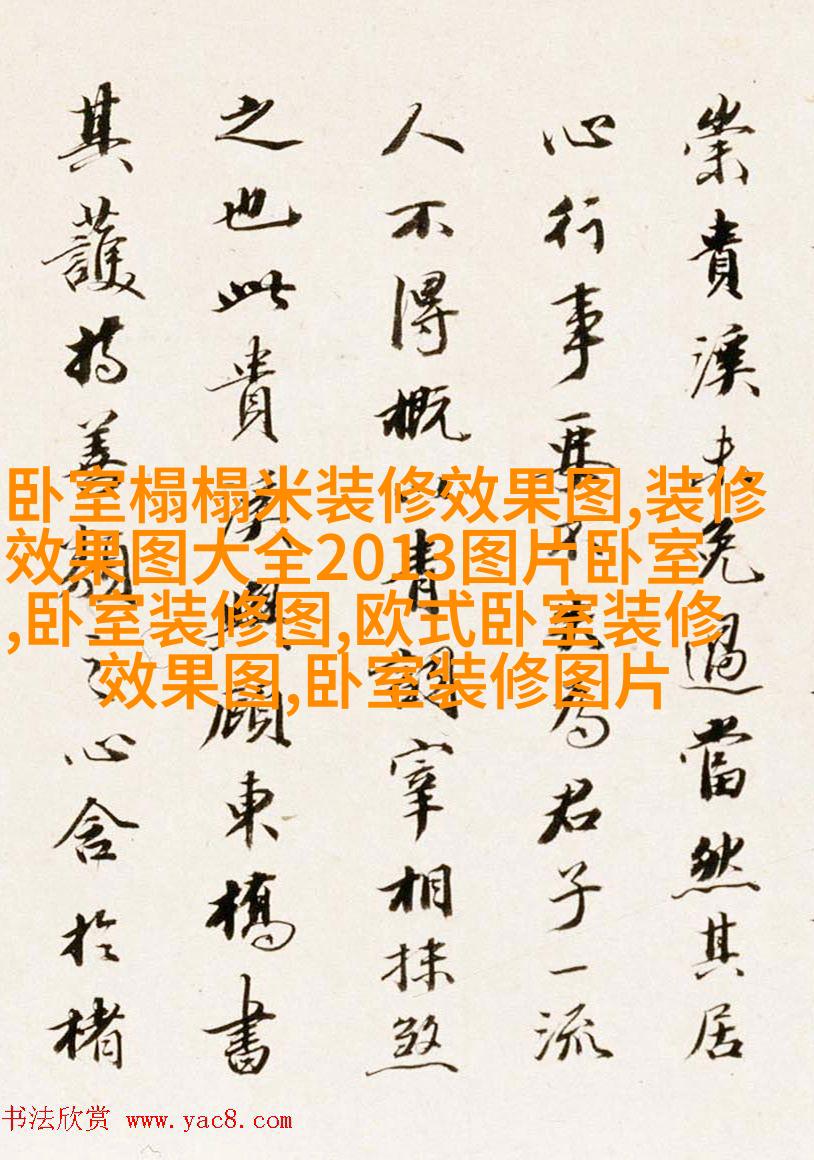 崇貴溪未免過當然其居
心行事要不失為君子一流
人不得概以青詞宰相抹煞
之也此貴溪與顧東橋書
其護持善類之心含於楮
卧室榻榻米装修效果图,装修
效果图大全2013图片卧室
,卧室装修图,欧式卧室装修
效果图,卧室装修图片
书法欣赏 www.yac8.com